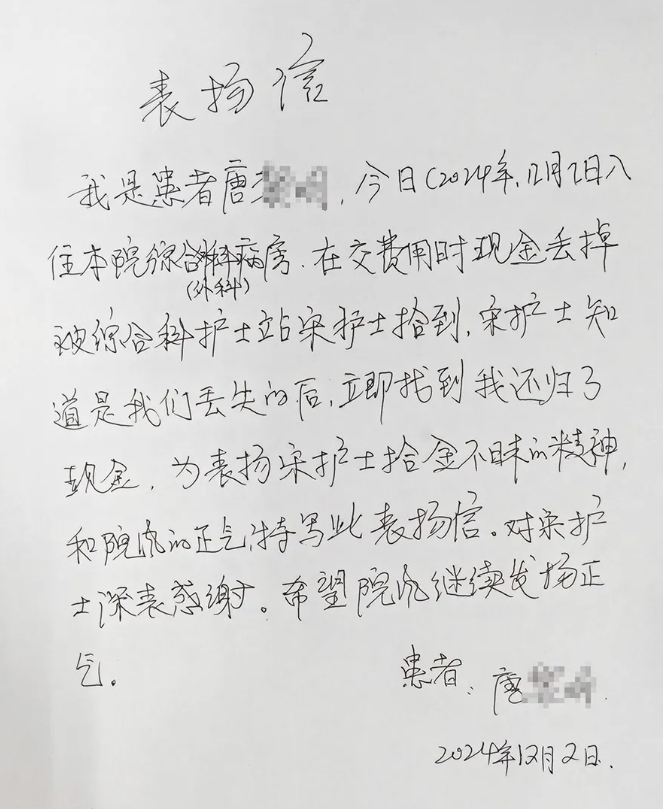 表扬信
我是患者唐，今日（2024年，12月2日入
住本院综合外科病房．在交费用时现金丢掉
（外科）
被综合科护士站宋护士拾到，宋护士知
道是我们丢失的后，立即找到我还归了
现金，为表扬宋护士拾金不昧的精神，
和院内的正气，特写此表扬信。对宋护
士深表感谢。希望院内继续发扬正
气。
患者：唐
2024年12月2日．